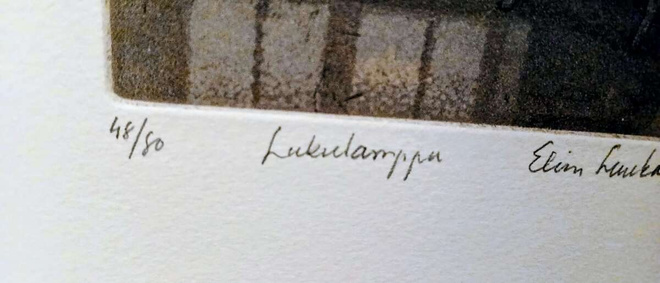 48/80 Lukulamppu Elina Luuka